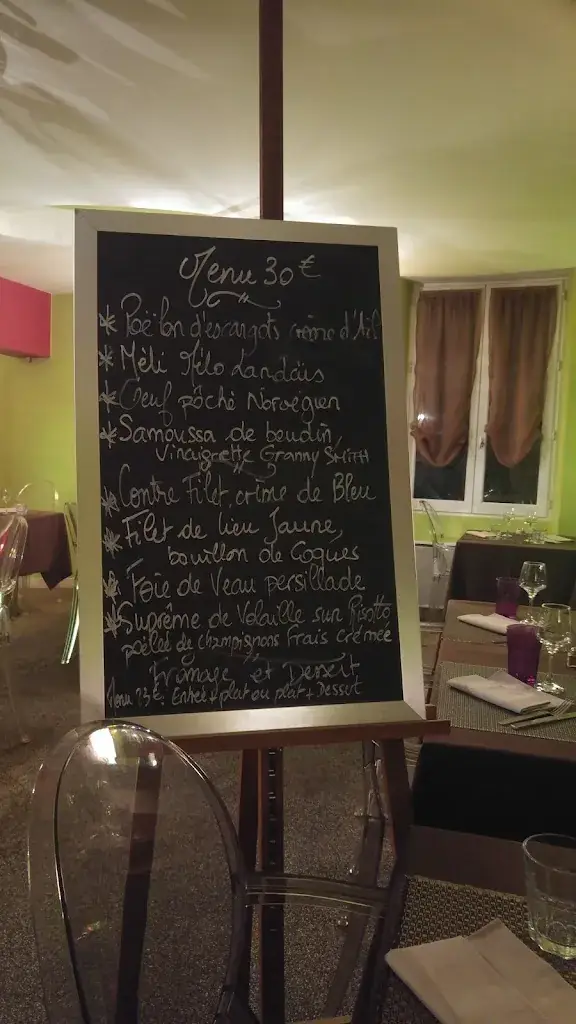 Menu 30€
* Poëlon d'escargots crème d'Ail
* Méli Mélo Landais
* Oeuf pôché Norvégien
* Samoussa de boudin,
Vinaigrette Granny SMITH
* Contre Filet, crème de Bleu
* Filet de Lieu Jaune,
bouillon de Coques
* Foie de Veau persillade
* Suprême de Volaille sur Risotto
poêlée de champignons Frais crémée
Fromage et Dessert
Menu 23€. Entrée + plat ou plat + Dessert